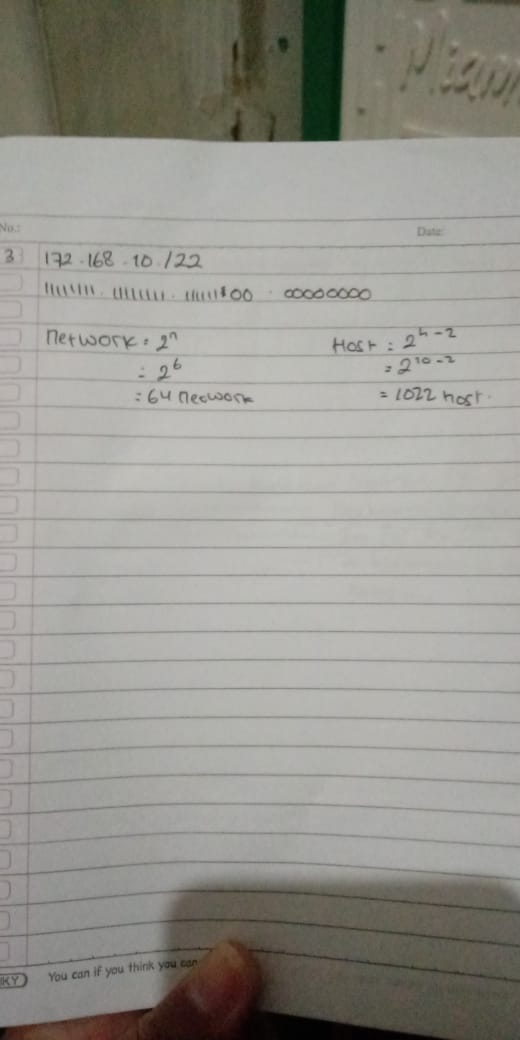 Miam
No.:
Date:
3 172.168.10./22
11111111.11111111.11111100.00000000
Network = 2ⁿ
Host = 2ʰ⁻²
= 2⁶
= 2¹⁰⁻²
= 64 network
= 1022 host.
KY You can if you think you can